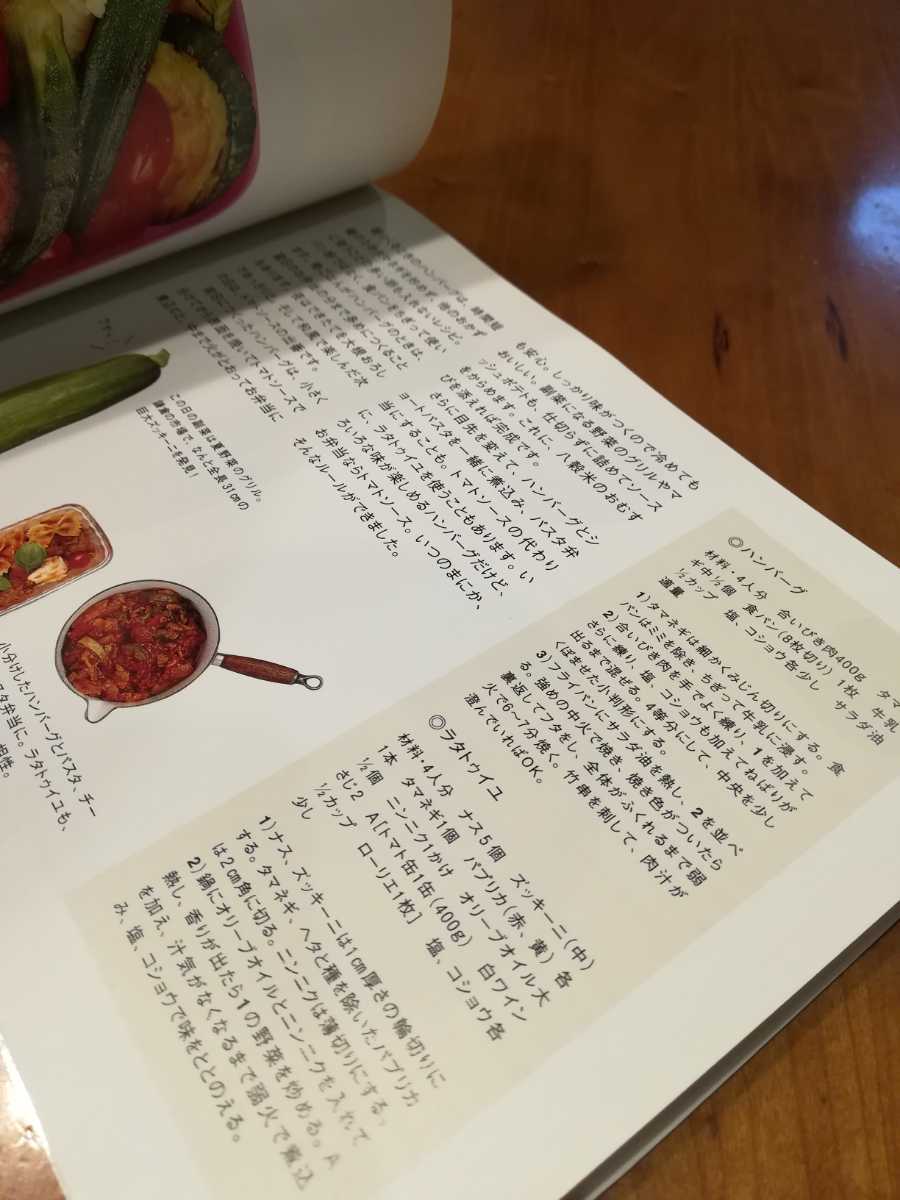 のハンバーグは、時間短
他のおかず
も入れないレシピ。
食パンをちぎって使い
ハンバーグのときは、
多めにつくること
できたてを大根おろし
そして和風で楽しんだ次
トマトソースの出番です。
ハンバーグは、小さく
焼いてトマトソースで
お弁当に
も安心。しっかり味がつくので冷めても
おいしい。副菜になる野菜のグリルやマ
ッシュポテトも、仕切らずに詰めてソース
をからめます。これに、八穀米のおむす
びを添えれば完成です。
さらに目先を変えて、ハンバーグとシ
ョートパスタを一緒に煮込み、パスタ弁
当にすることも。トマトソースの代わり
に、ラタトゥイユを使うこともあります。い
ろいろな味が楽しめるハンバーグだけど、
お弁当ならトマトソース。いつのまにか、
そんなルールができました。
この日の副菜は夏野菜のグリル。
鎌倉の市場で、なんと全長31㎝の
巨大ズッキーニを発見！
小分けしたハンバーグとパスタ、チー
スタ弁当に。ラタトゥイユも、
相性。
◎ハンバーグ
材料・4人分　合いびき肉400g　タマ
ギ中½個　食パン(8枚切り)1枚　牛乳
½カップ　塩、コショウ各少し　サラダ油
適量
1)タマネギは細かくみじん切りにする。食
パンはミミを除き、ちぎって牛乳に浸す。
2)合いびき肉を手でよく練り、1を加えて
さらに練り、塩、コショウも加えてねばりが
出るまで混ぜる。4等分にして、中央を少し
くぼませた小判形にする。
3)フライパンにサラダ油を熱し、2を並べ
る。強めの中火で焼き、焼き色がついたら
裏返してフタをし、全体がふくれるまで弱
火で6〜7分焼く。竹串を刺して、肉汁が
澄んでいればOK。
◎ラタトゥイユ
材料・4人分　ナス5個　ズッキーニ(中)
1本　タマネギ1個　パプリカ(赤、黄)各
½個　ニンニク1かけ　オリーブオイル大
さじ2　A[トマト缶1缶(400g)　白ワイン
½カップ　ローリエ1枚]　塩、コショウ各
少し
1)ナス、ズッキーニは1㎝厚さの輪切りに
する。タマネギ、ヘタと種を除いたパプリカ
は2㎝角に切る。ニンニクは薄切りにする。
2)鍋にオリーブオイルとニンニクを入れて
熱し、香りが出たら1の野菜を炒める。A
を加え、汁気がなくなるまで弱火で煮込
み、塩、コショウで味をととのえる。